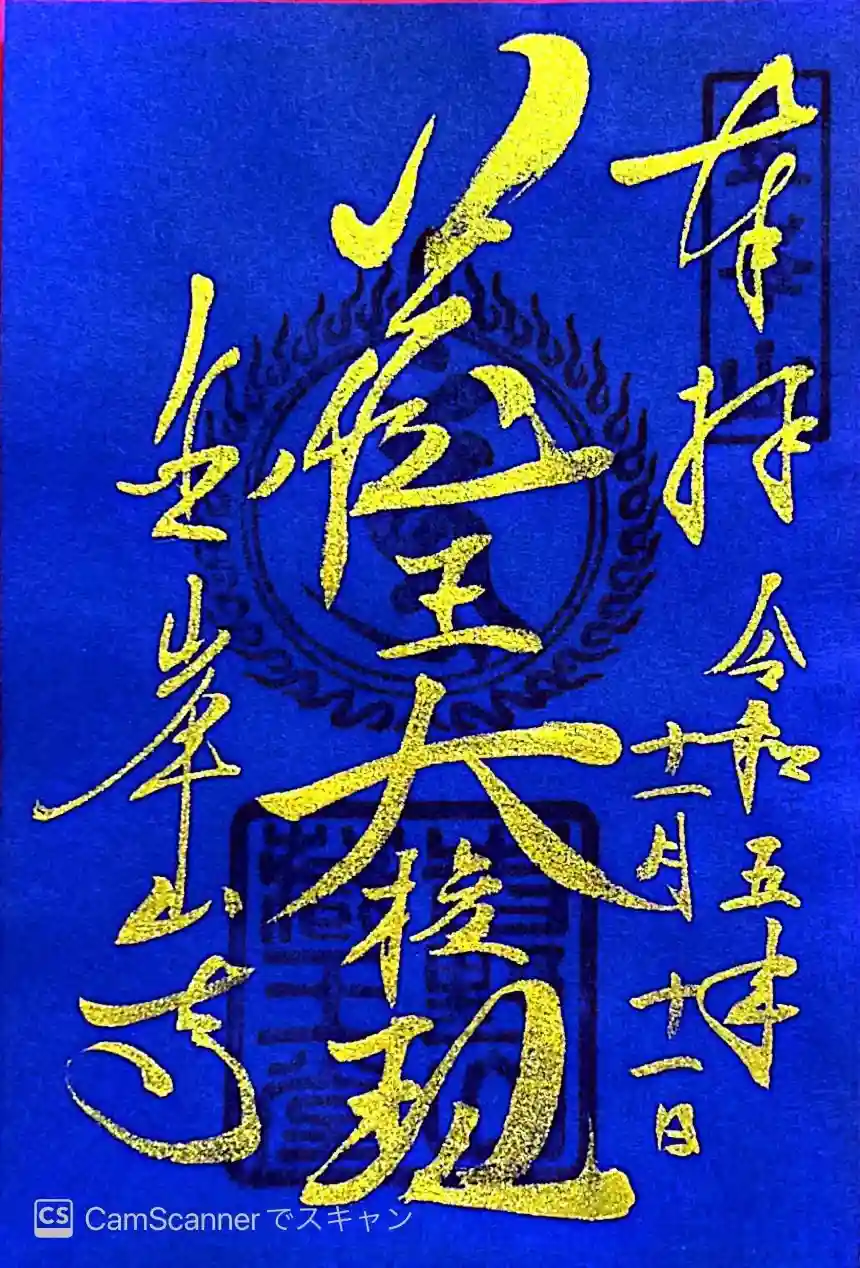 奉拝
令和五年
十一月
十一日
蔵王大権現
金峯山寺
CamScannerでスキャン